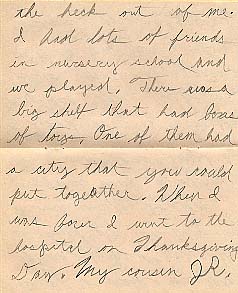 the heck out of me.
I had lots of friends
in nursery school and
we played. There was a
big shelf that had boxs
of toys. One of them had
a city that you could
put togather. When I
was four I went to the
hospital on Thanksgiving
Day. My cousin JR.